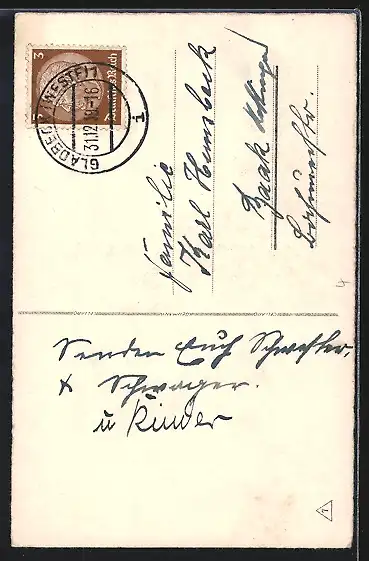 3
Deutsches Reich
GLADBECK (WESTF) 1
31.12.39-16
i
Familie
Karl Humbeck
Baak Hattingen
Senden Euch Schwester,
+ Schwager.
u Kinder